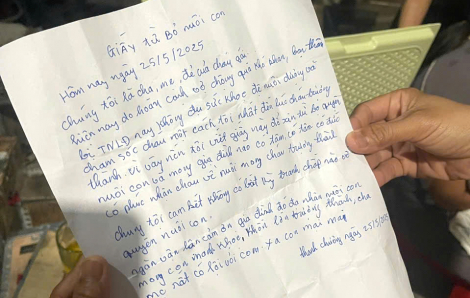 GIẤY từ Bỏ nuôi con
Hôm nay ngày, 25/5/2025
Chúng tôi là cha, mẹ, đẻ của cháu gái
hiện nay do hoàn cảnh vợ chồng quá khó khăn, bản thân
bị TNLD nay không đủ sức khỏe để nuôi dưỡng và
chăm sóc cháu một cách tốt nhất đến lúc cháu trưởng
thành. Vì vậy nên tôi viết giấy này để xin từ bỏ quyền
nuôi con và mong gia đình nào có tâm, có tấm có đức
có phúc nhận cháu về nuôi mong cháu trưởng thành
chúng tôi cam kết không có bất kỳ tranh chấp nào về
quyền nuôi con.
ngàn vạn lần cảm ơn gia đình đã nhận nuôi con
mong con mạnh khỏe, khôn lớn trưởng thành, cha
mẹ rất có lỗi với con
Thanh chương ngày, 25/5/2025